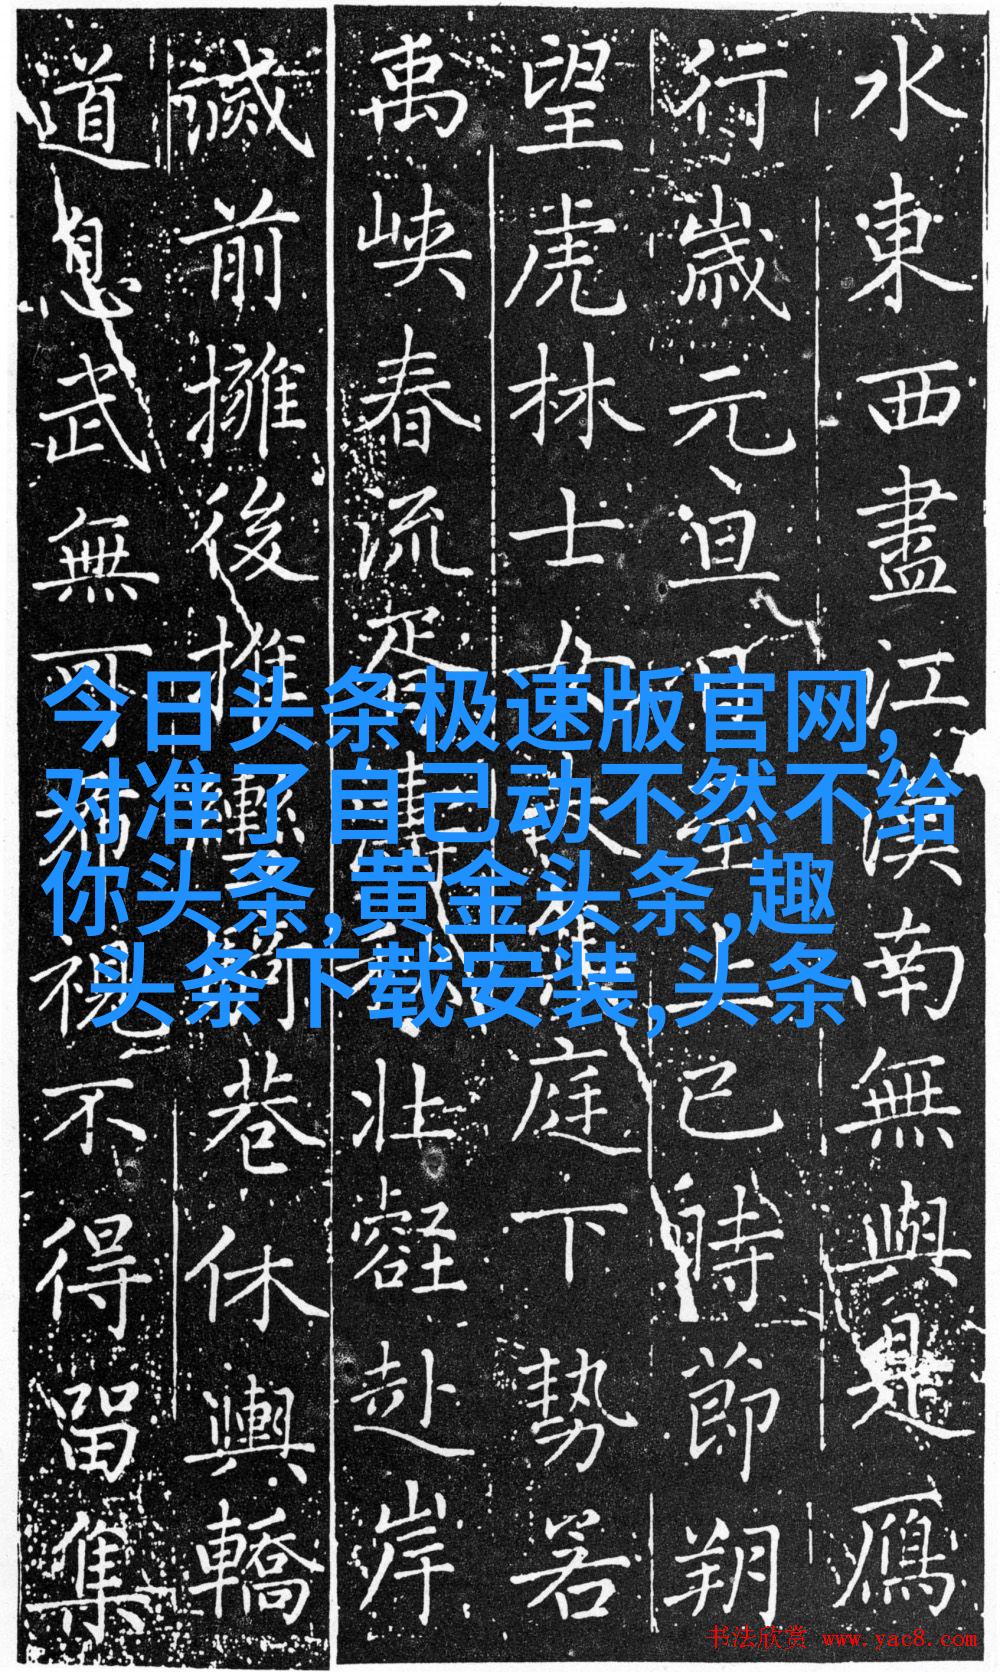 水東西盡江漢南無與是鴈
行歲元旦至上巳時節朔
望虎林士女庭下勢若
禹峽春流胥濤秋壯壑赴岸
滅前擁後推巷休輿轎
道息武無可視不得留集
今日头条极速版官网,
对准了自己动不然不给
你头条,黄金头条,趣
头条下载安装,头条
书法欣赏 www.yac8.com